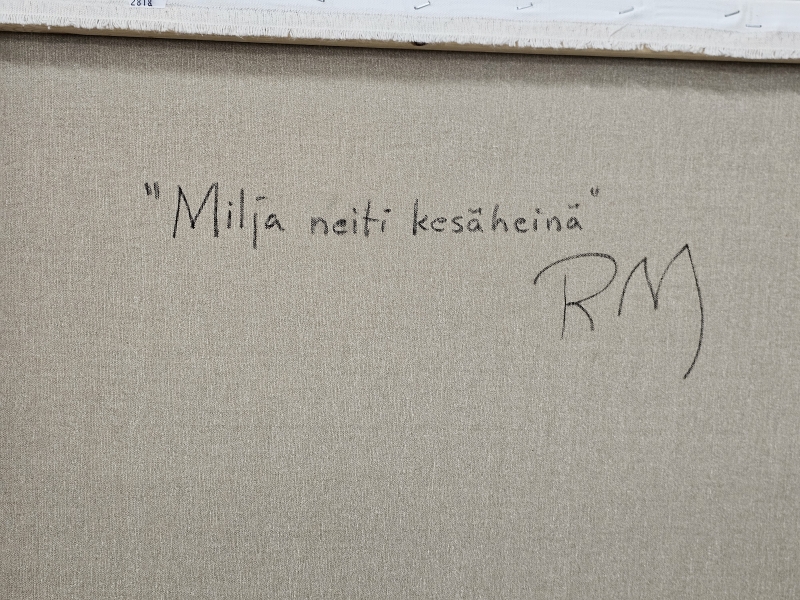 2818
"Milja neiti kesäheinä"
RM